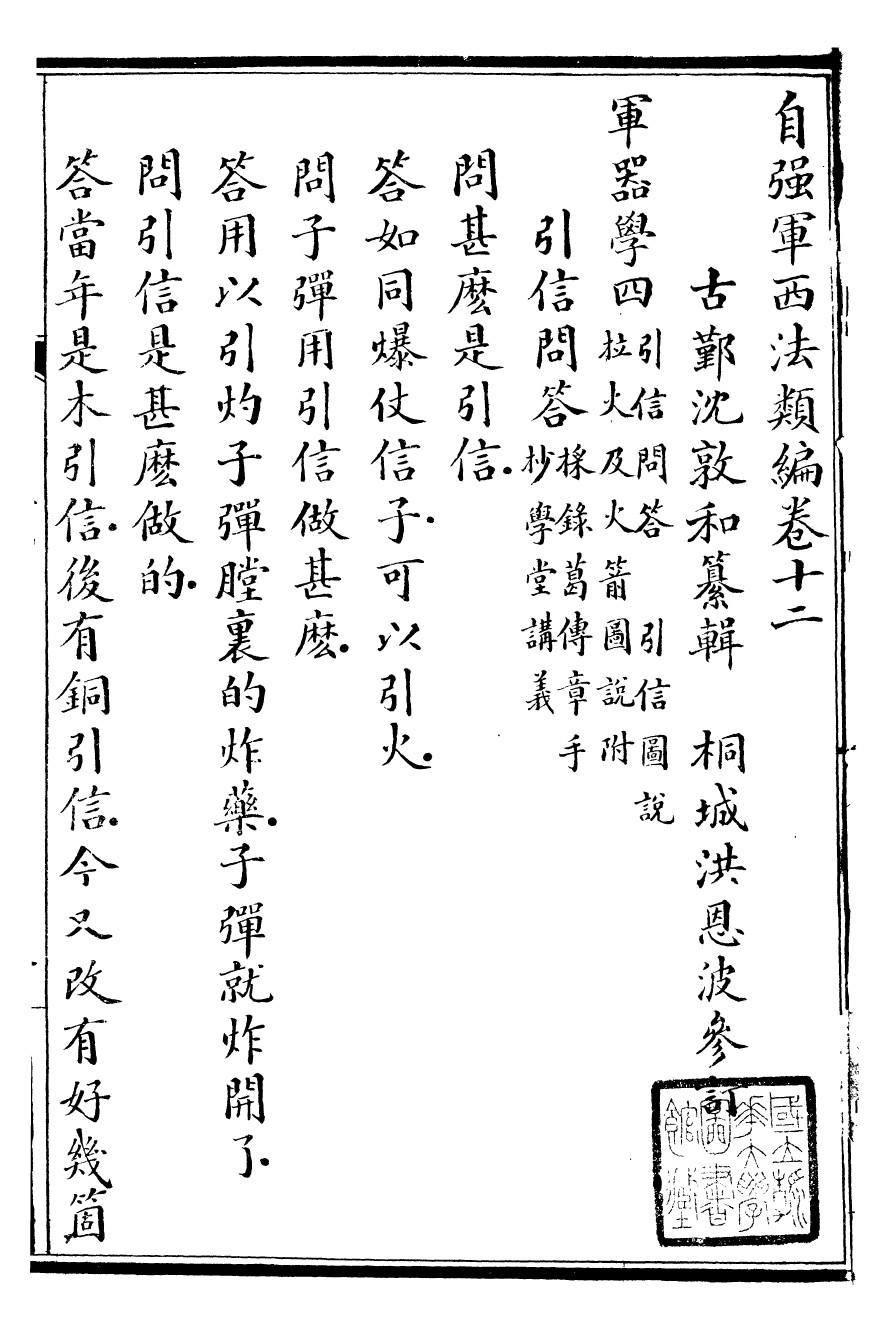 自强軍西法類編卷十二
古鄞沈敦和纂輯　桐城洪恩波參訂
軍器學四
引信問答　引信圖說
拉火及火箭圖說附
引信問答
採錄葛傳章手
抄學堂講義
問甚麽是引信.
答如同爆仗信子.可以引火.
問子彈用引信做甚麽.
答用以引灼子彈膛裏的炸藥.子彈就炸開了.
問引信是甚麽做的.
答當年是木引信.後有銅引信.今又改有好幾箇
國立
大學
圖書
館藏